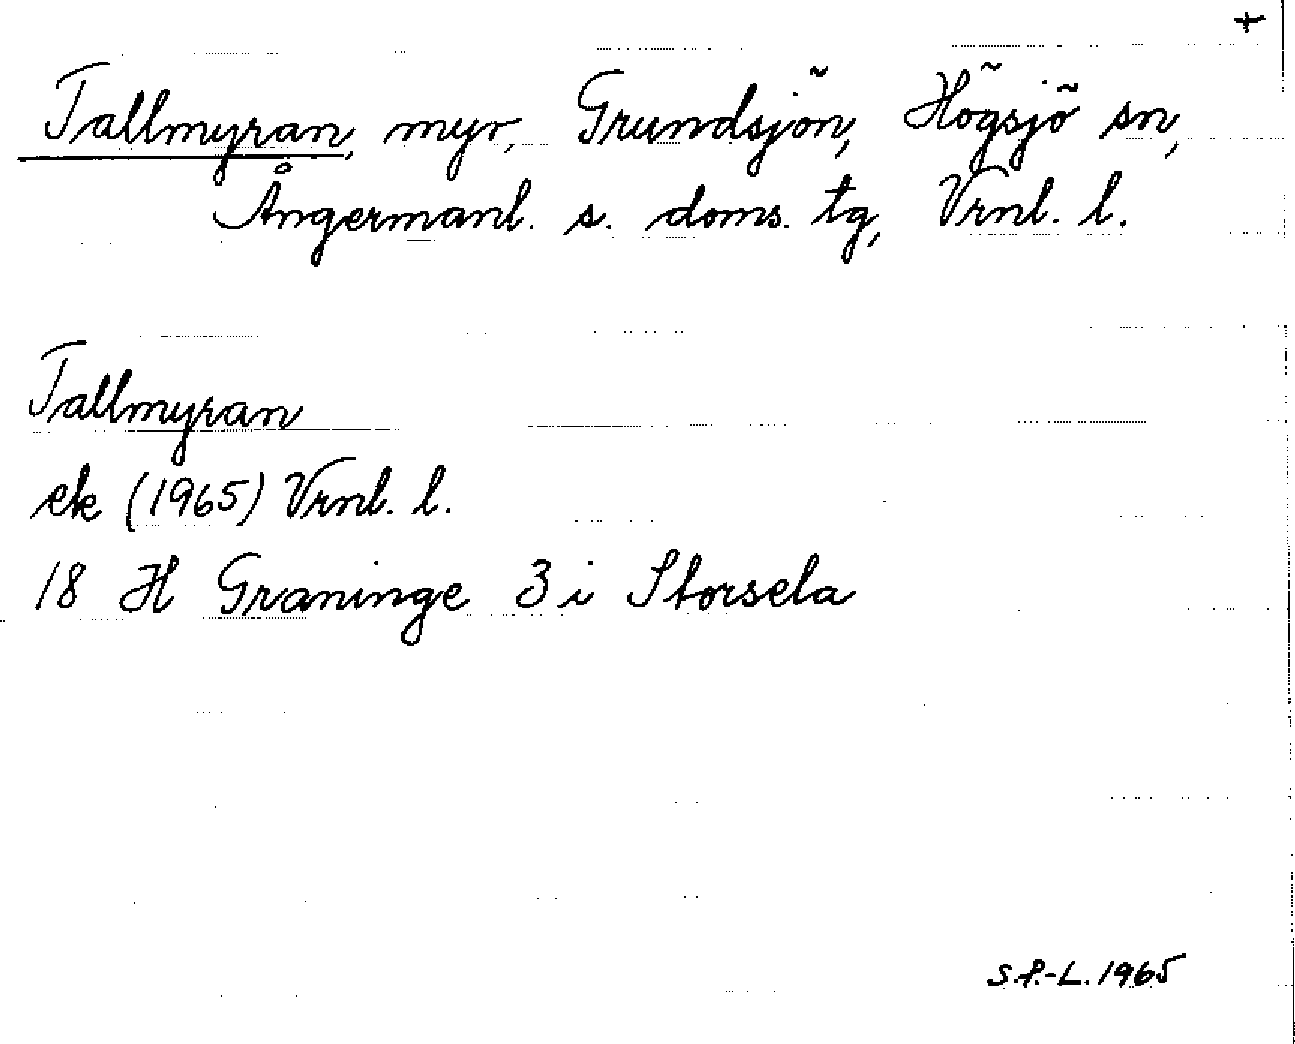 +
Tallmyran, myr, Grundsjön, Högsjö sn,
Ångermanl. s. doms. tg, Vrnl. l.
Tallmyran
ek (1965) Vrnl. l.
18 H Graninge 3 i Storsela
S.P.-L. 1965